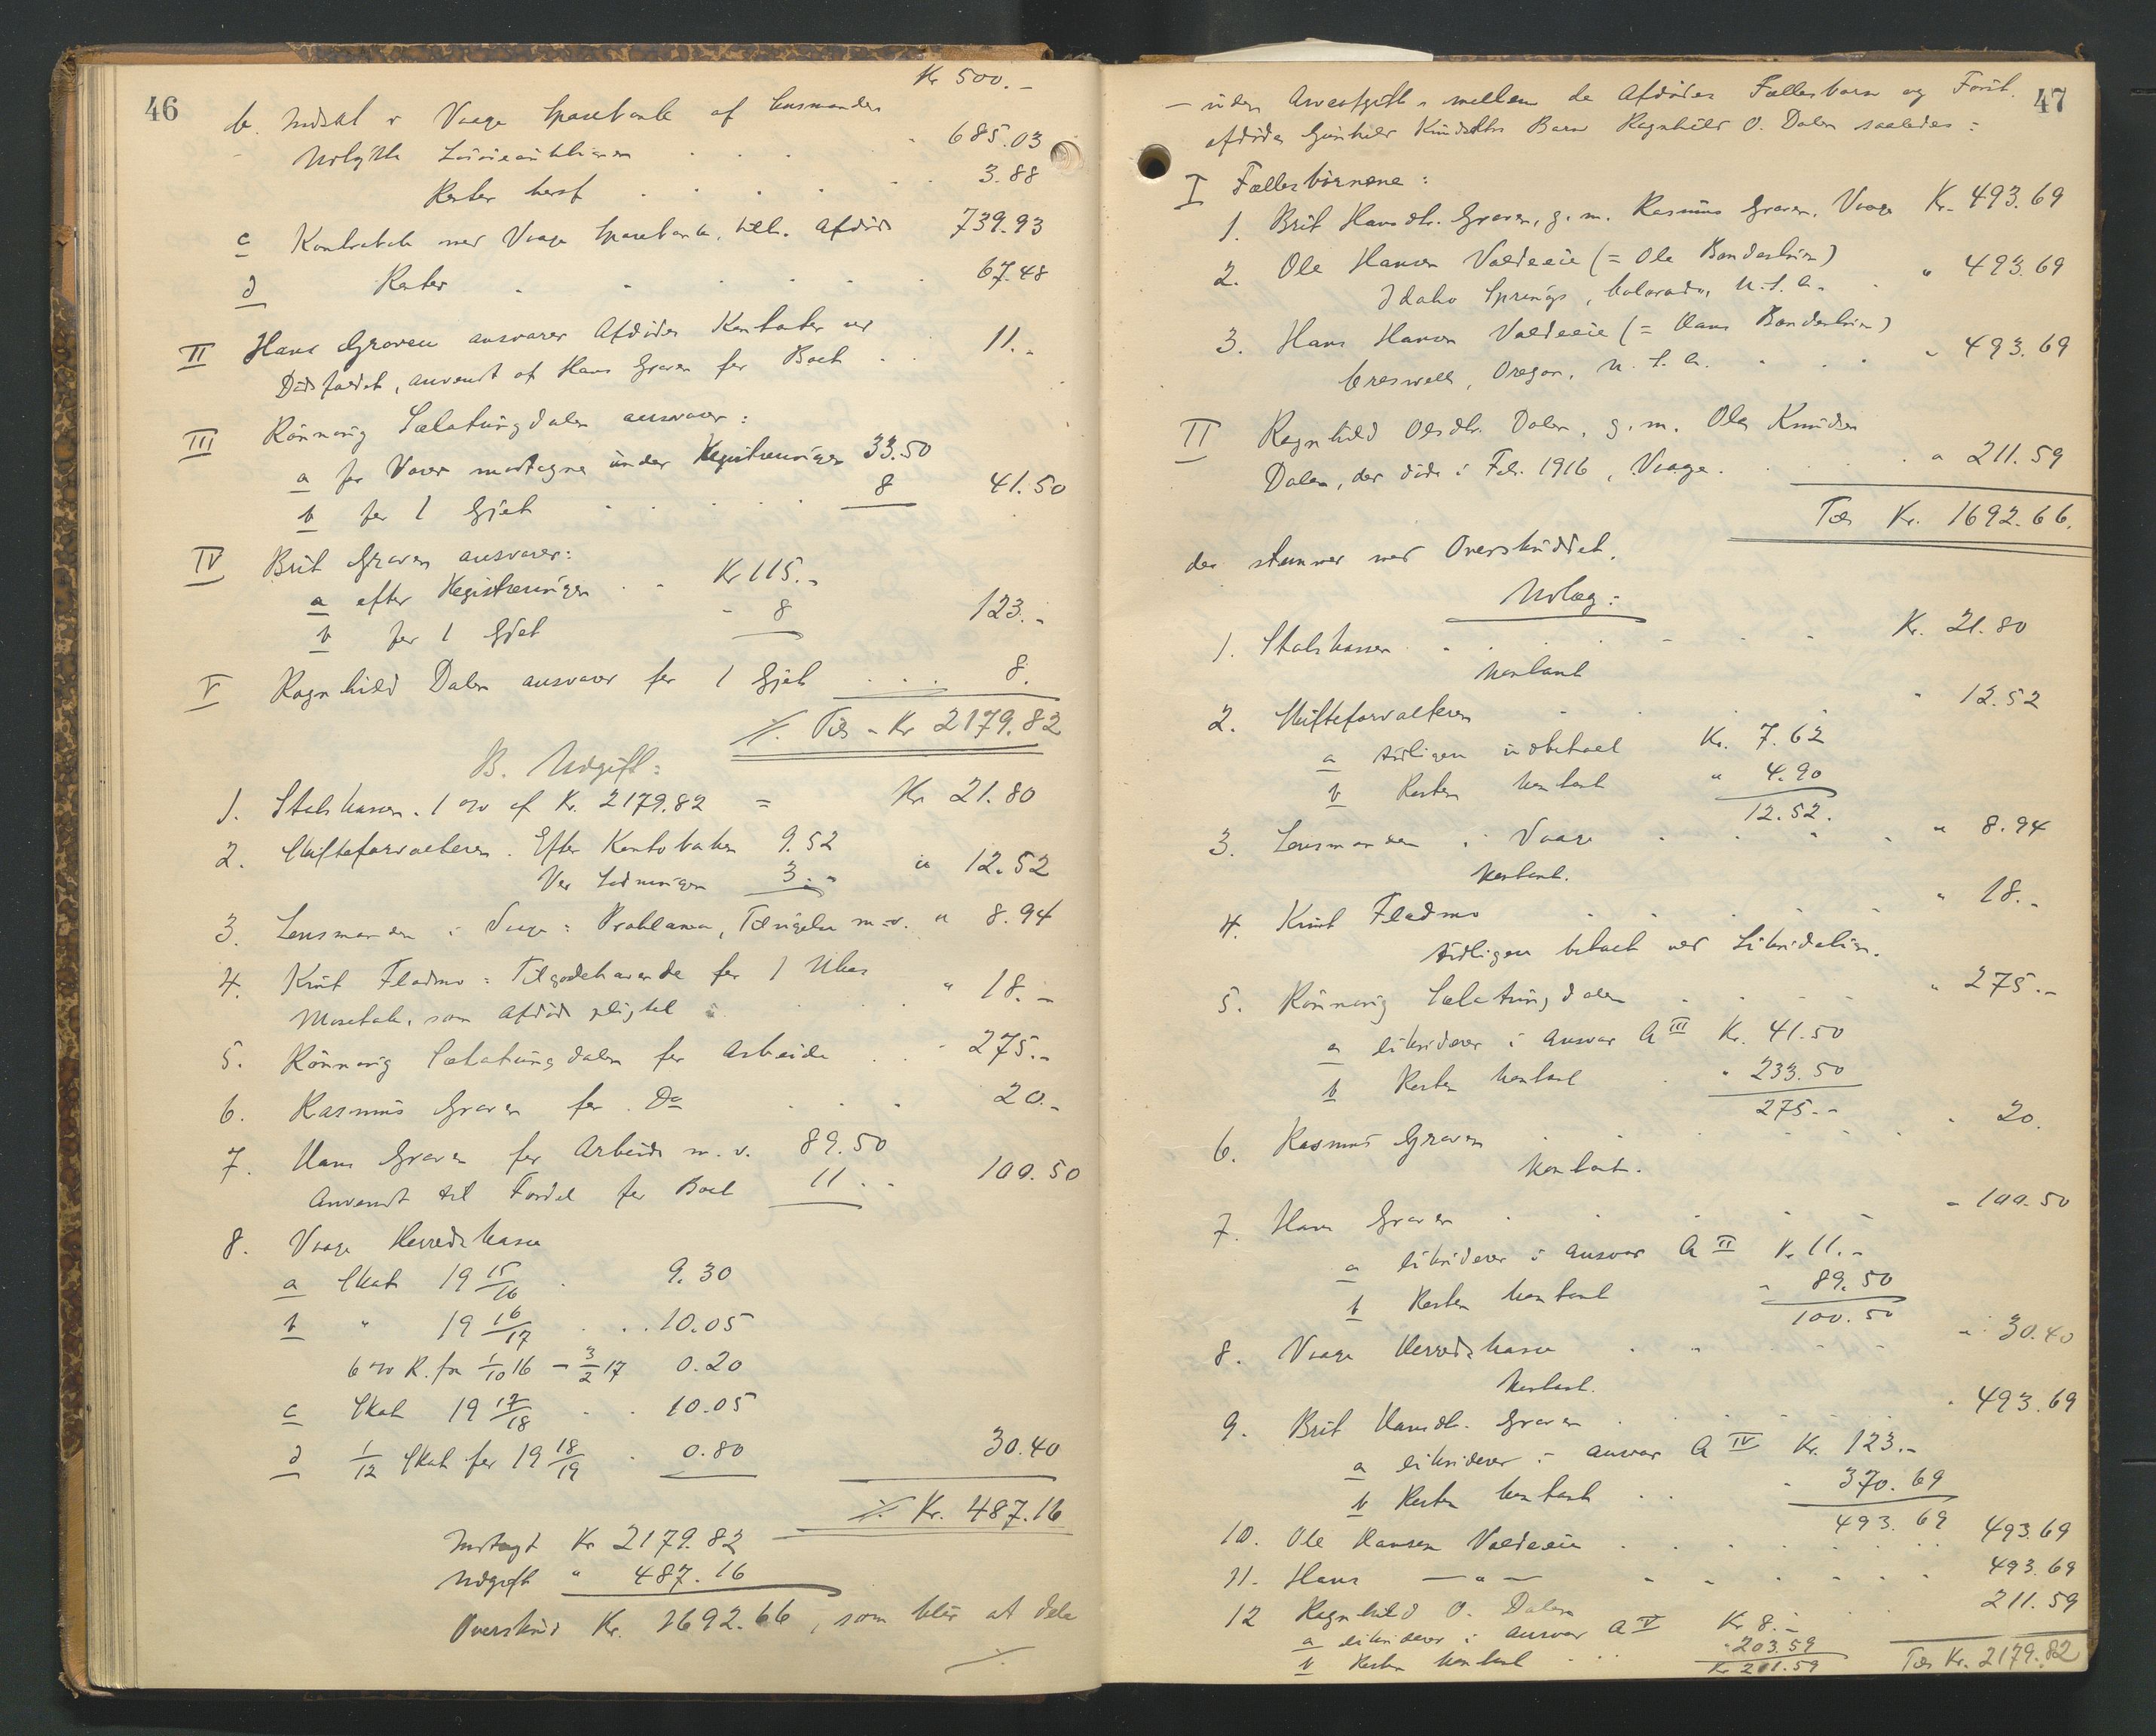 46
Kr 500.-
b. Indsat i Vaage Sparebank af Lensmanden
Utbytte Løsøreauktionen 685.03
Renter heraf 3.88
c Kontrabok med Vaage Sparebank, tilh. Afdøde 739.93
d Renter 67.48
II Hans Graven ansvarer Afdødes Kontanter ved
Dødsfaldet, anvendt af Hans Graven for Boet 11.-
III Rønnaug Sælatungdalen ansvarer:
a for Varer mottagne under Registreringen 33.50
b for 1 Gjet 8 41.50
IV Brit Graven ansvarer:
a efter Registreringen Kr 115.-
b for 1 Gjet - 8 123.-
V Ragnhild Dalen ansvarer for 1 Gjet 8.
Tils - Kr 2179.82
B. Udgift:
1. Statskassen. 1 % af Kr. 2179.82 = Kr 21.80
2. Skifteforvalteren. Efter Kontoboken 9.52
Ved Slutningen 3.- " 12.52
3. Lensmanden i Vaage: Proklama, Tilsigelse m.v. " 8.94
4. Knut Fladmo: Tilgodehavende for 1
som Afdøde pligtet " 18.-
5. Rønnaug Sælatungdalen for Arbeide - 275.-
6. Rasmus Graven for Do 20.-
7. Hans Graven for Arbeide m.v. 89.50
Anvendt til Fordel for Boet 11.- 100.50
8. Vaage Herredskasse
a Skat 19 15/16 9.30
b " 19 16/17 10.05
6 % R. fra 1/10 16 - 3/2 17 0.20
c Skat 19 17/18 10.05
d 1/12 Skat for 19 18/19 0.80 30.40
Kr. 487.16
Indtægt Kr 2179.82
Udgift " 487.16
Overskud Kr. 1692.66, som blir at dele
47
- uden Arveafgift - mellem de Afdødes Fællesbarn og Forut
afdøde Gunhild Knudsdtrs Barn Ragnhild O. Dalen saaledes:
I Fællesbørnene:
1. Brit Hansdtr. Graven, g. m. Rasmus Graven, Vaage Kr. 493.69
2. Ole Hansen Valdeeie (= Ole Bondeshun)
Idaho Springs, Colorado, U. S. A. " 493.69
3. Hans Hansen Valdeeie (= Hans Bondeshun)
Creswell, Oregon, U. S. A. " 493.69
II Ragnhild Olsdtr. Dalen, g. m. Ola Knudsen
Dalen, der døde i Feb. 1916, Vaage. " 211.59
Tils Kr. 1692.66.
der stemmer med Overskuddet.
Utlæg:
1. Statskassen Kr. 21.80
Kontant
2. Skifteforvalteren " 12.52
a tidligere indbetalt Kr. 7.62
b Resten kontant " 4.90
12.52.
3. Lensmanden i Vaage " 8.94
Kontant.
4. Knut Fladmo " 18.-
tidligere betalt ved Likvidation.
5. Rønnaug Sælatungdalen " 275.-
a likviderer i Ansvar A III Kr. 41.50
b Resten kontant " 233.50
275.-
6. Rasmus Graven " 20.
Kontant.
7. Hans Graven - 100.50
a likviderer i Ansvar A II Kr 11.-
b Resten kontant - 89.50
100.50
8. Vaage Herredskasse " 30.40
Kontant.
9. Brit Hansdtr. Graven " 493.69
a likviderer i Ansvar A IV Kr. 123.-
b Resten kontant - 370.69
493.69
10. Ole Hansen Valdeeie 493.69
11. Hans — " — 493.69
12 Ragnhild O. Dalen 211.59
a likviderer i Ansvar A V Kr 8.-
b Resten kontant " 203.59
Kr 211.59
Tils Kr. 2179.82